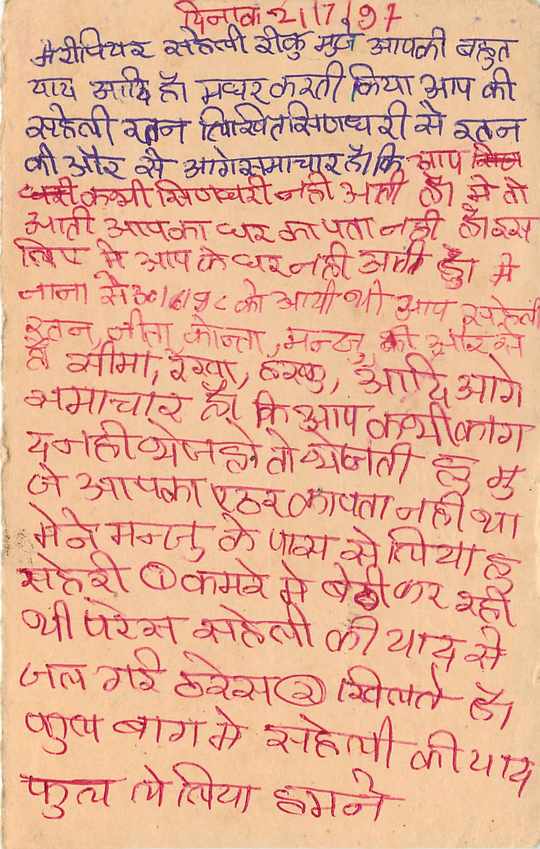 दिनाक 21/7/97
मेरीपियर सहेली रीकु मुजे आपकी बहुत
याद आदि है। मघर करती किया आप की
सहेली रतन लिखित सिणधरी से रतन
की और से आगे समाचार है। कि आप
कभी सिणधरी नही आती है। मे तो
आती आपका घर का पता नही है। इस
लिए मे आप के घर नही आती हु। मे
नाना से को आयी थी आप सहेली
रतन, गीता, कान्ता, मन्जु की और से
है सीमा, रेखा, हरकु, आदि आगे
समाचार है। कि आप कभी काग
द नही भेजते तो भेजती हु मु
जे आपका एडर का पता नही था
मेने मन्जु के पास से लिया हु
सहेरी ① कमरे मे बेठी कर रही
थी परेस सहेली की याद से
जल गई ठरेस ② खिलते है।
फुल बाग मे सहेली की याद
फुल ले लिया हमने